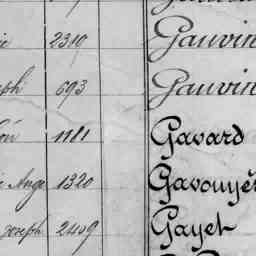 2319 Gauvin
seph 693 Gauvin
1181 Gavard
Ange 1320 Gavouyèr
Joseph 2409 Gayet